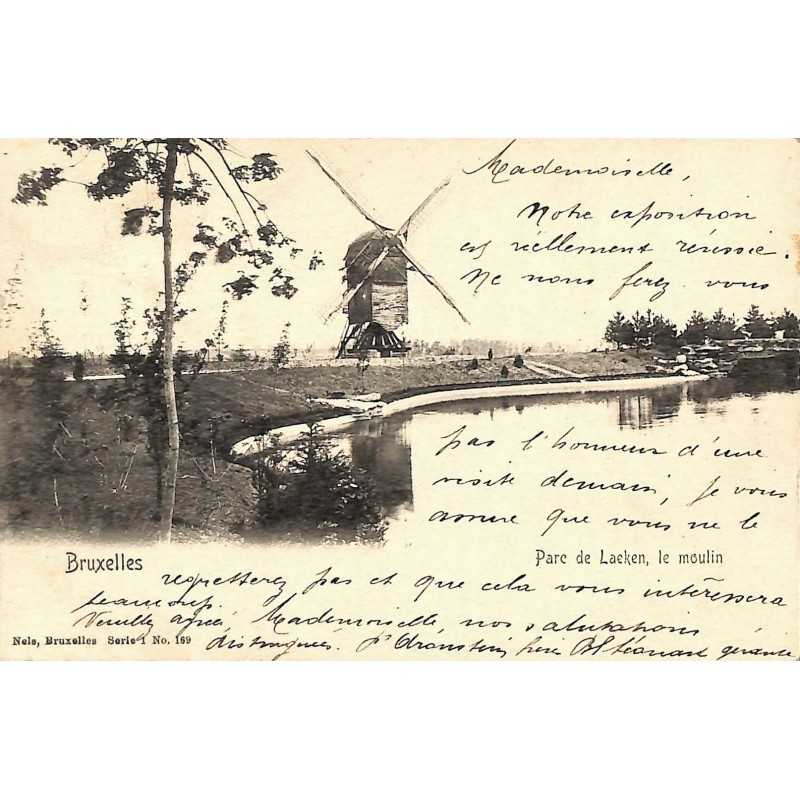 Mademoiselle,
Notre exposition
est réellement réussie.
Ne nous ferez vous
pas l'honneur d'une
visite demain, je vous
assure que vous ne le
Bruxelles
Parc de Laeken, le moulin
regretterez pas et que cela vous intéressera
beaucoup.
Veuillez agréer Mademoiselle, nos salutations
Nels, Bruxelles Serie 1 No. 169
distinguées. gérante